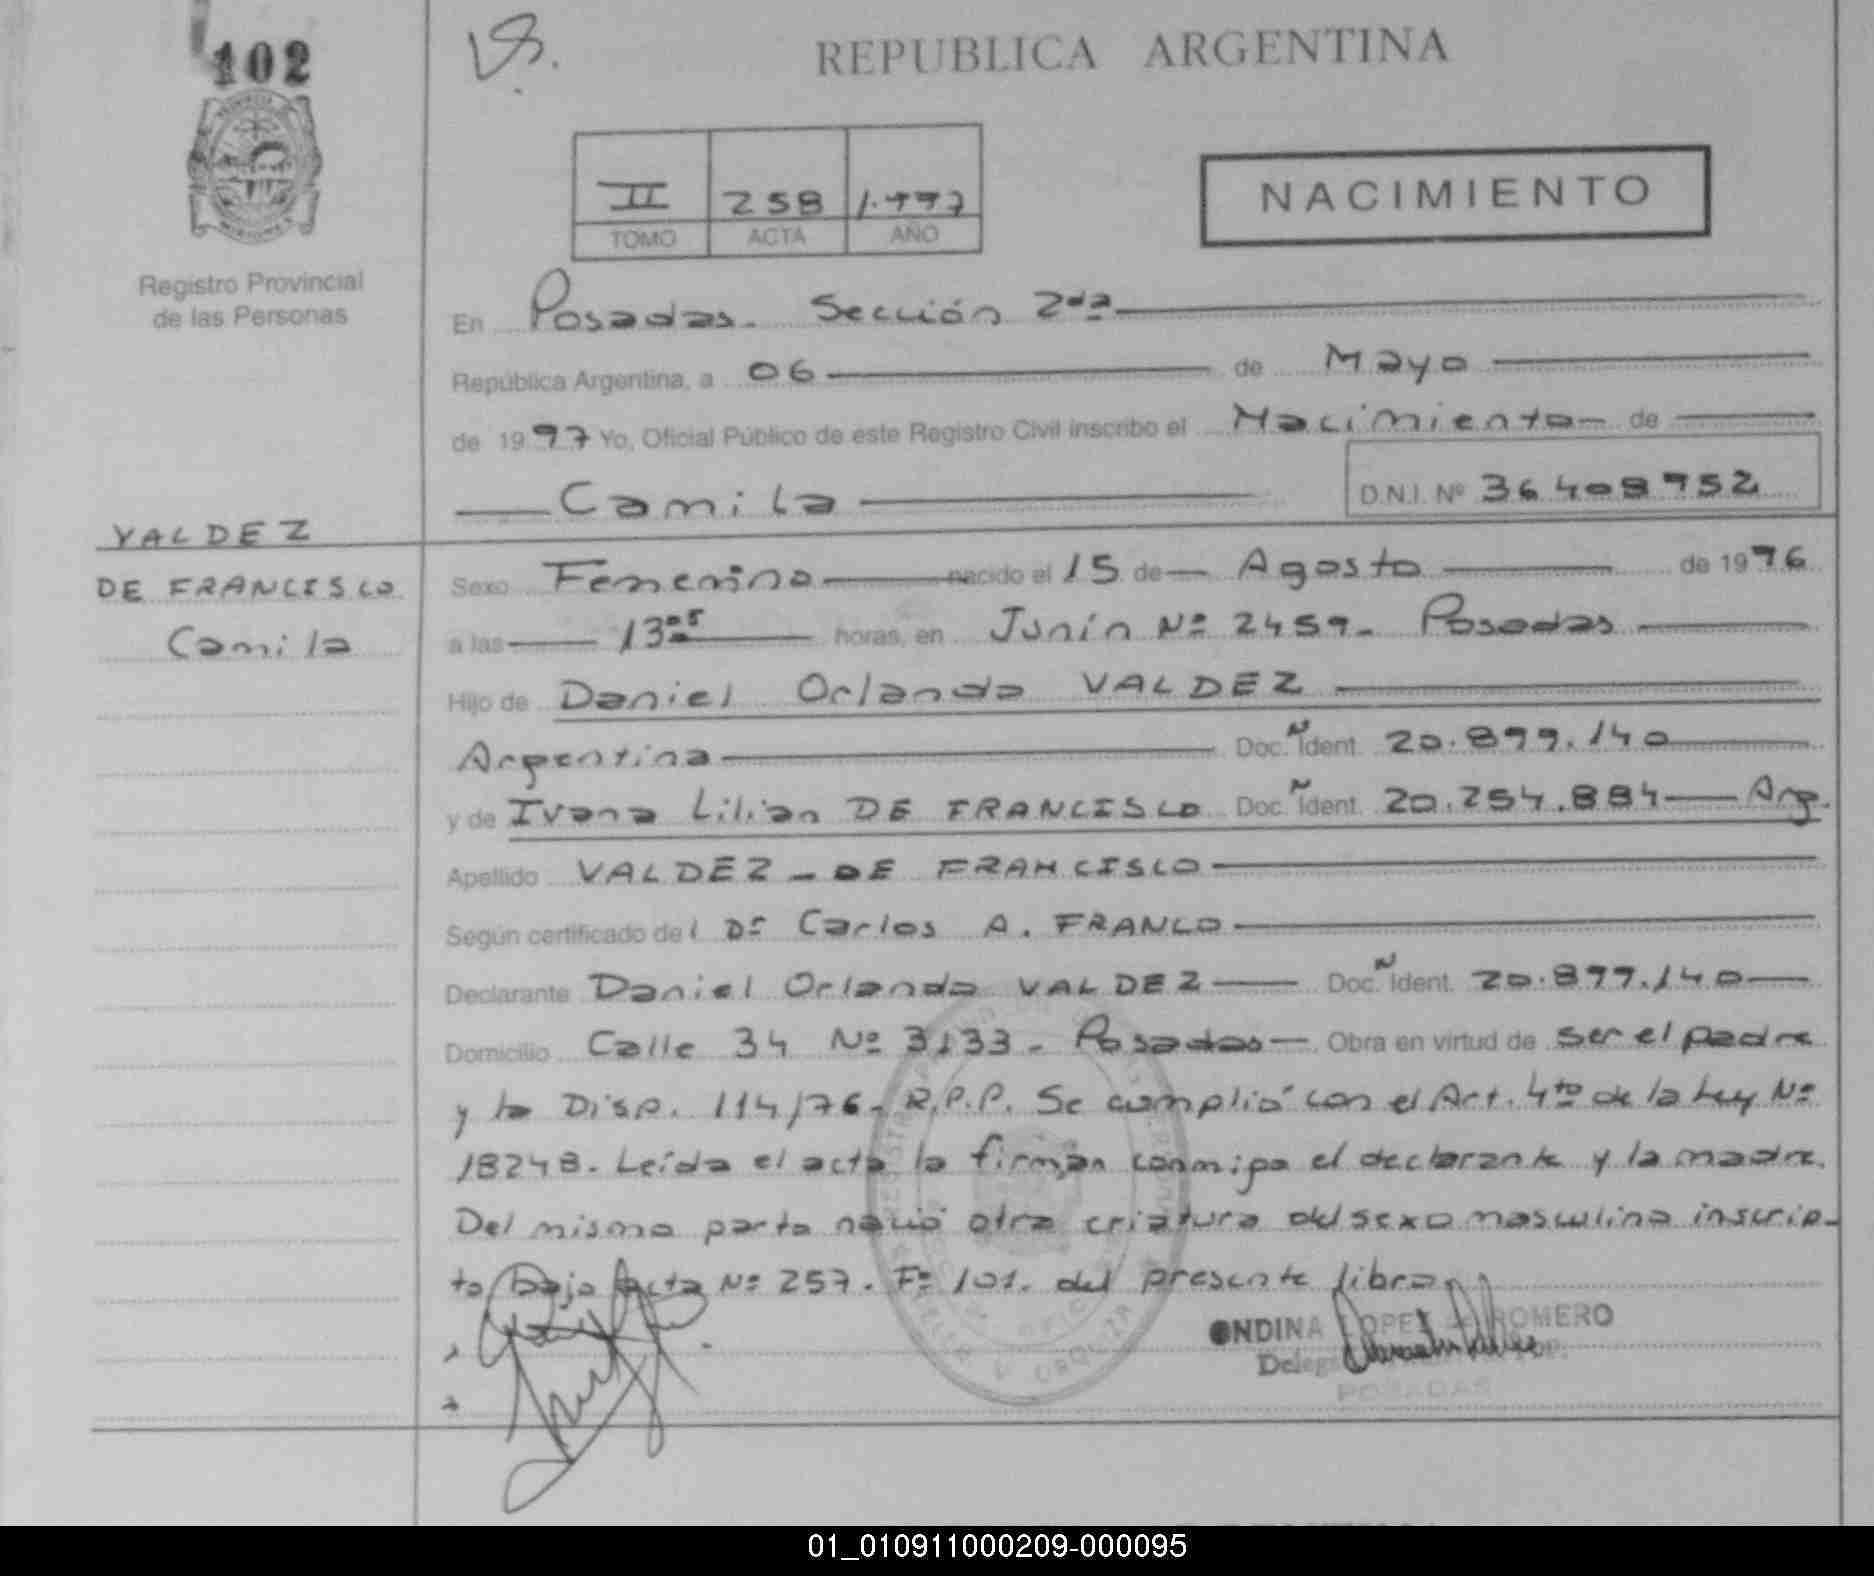 102
REPUBLICA ARGENTINA
II 258 1.997
TOMO ACTA AÑO
NACIMIENTO
Registro Provincial
de las Personas
En Posadas. Sección 2da
República Argentina, a 06 de Mayo
de 1997 Yo, Oficial Público de este Registro Civil inscribo el Nacimiento de
Camila D.N.I. Nº 36.408952
VALDEZ
DE FRANCISCO
Camila
Sexo Femenino nacido el 15 de Agosto de 1996
a las 13 05 horas, en Junín Nº 2459. Posadas
Hijo de Daniel Orlando VALDEZ
Argentina Doc. N Ident. 20.899.140
y de Ivana Lilian DE FRANCISCO Doc. N Ident. 20.254.884 Arg.
Apellido VALDEZ - DE FRANCISCO
Según certificado del Dr Carlos A. FRANCO
Declarante Daniel Orlando VALDEZ Doc. N Ident. 20.899.140
Domicilio Calle 34 Nº 3133 - Posadas Obra en virtud de ser el padre
y la Disp. 114/76. R.P.P. Se cumplió con el Art. 4to de la Ley Nº
18248. Leída el acta la firman conmigo el declarante y la madre.
Del mismo parto nació otra criatura del sexo masculino inscrip-
to bajo acta Nº 257. Fº 101. del presente libro
ONDINA LOPEZ de ROMERO
POSADAS
01_010911000209-000095